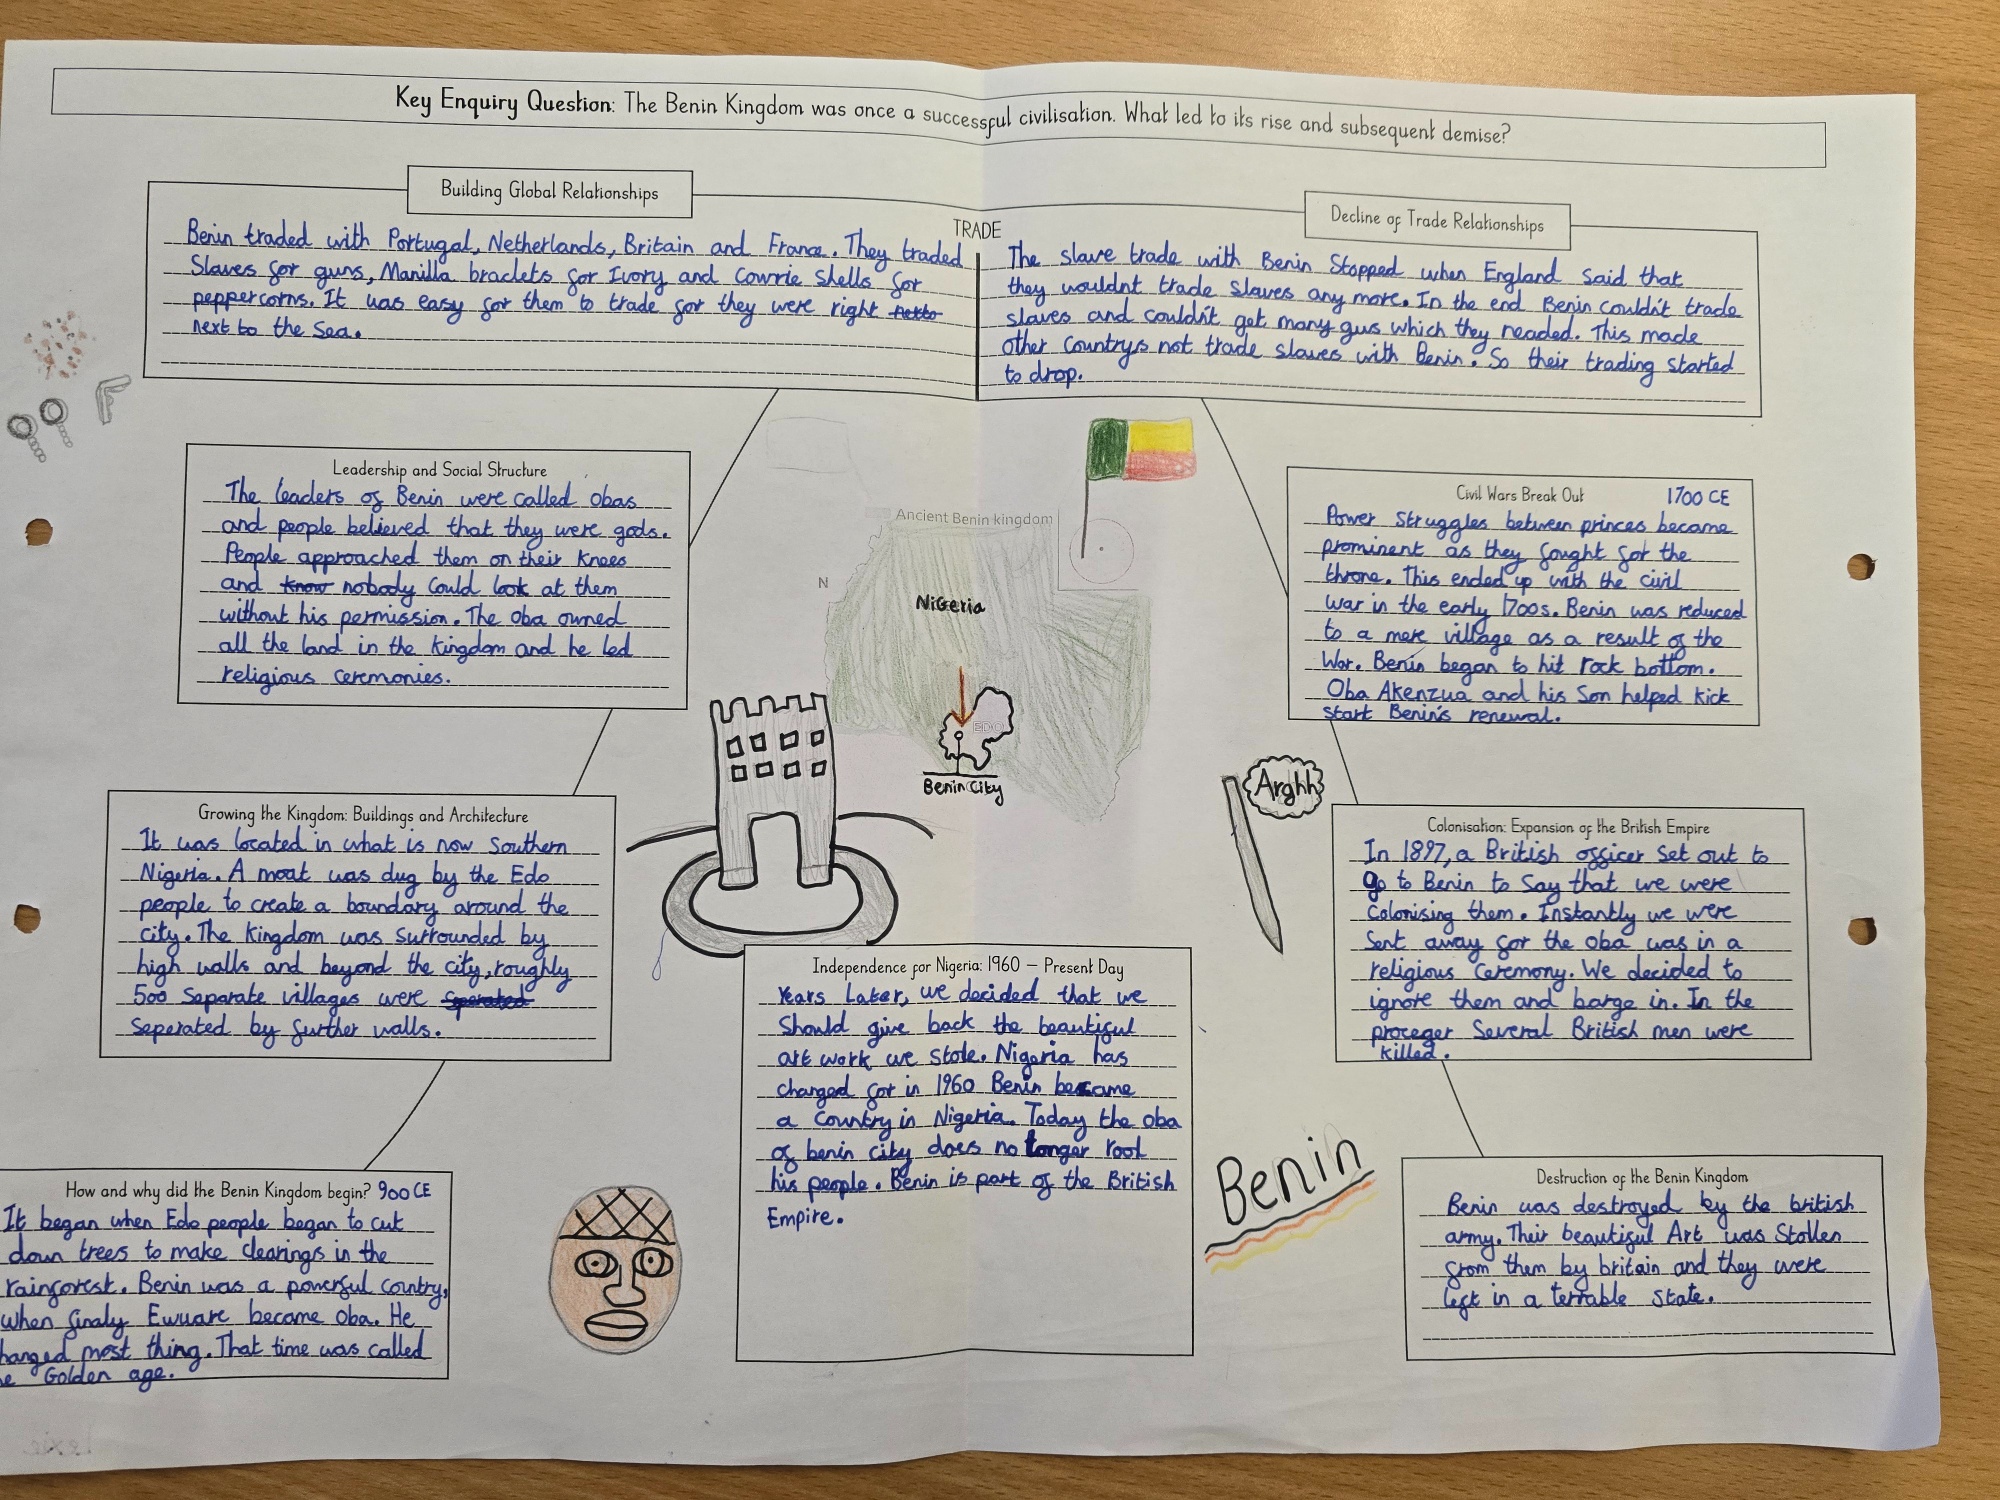 Key Enquiry Question: The Benin Kingdom was once a successful civilisation. What led to its rise and subsequent demise?
Building Global Relationships
Benin traded with Portugal, Netherlands, Britain and France. They traded
Slaves for guns, Manilla braclets for Ivory and Cowrie shells for
peppercorns. It was easy for them to trade for they were right
next to the sea.
TRADE
Decline of Trade Relationships
The slave trade with Benin Stopped when England said that
they wouldnt trade slaves any more. In the end Benin couldn't trade
slaves and couldn't get many gus which they neaded. This made
other Countrys not trade slaves with Benin. So their trading started
to drop.
Leadership and Social Structure
The leaders of Benin were called obas
and people believed that they were gods.
People approached them on their knees
and know nobody could look at them
without his permission. The oba owned
all the land in the kingdom and he led
religious ceremonies.
Ancient Benin kingdom
N
Nigeria
EDO
Benin City
Civil Wars Break Out 1700 CE
Power struggles between princes became
prominent as they fought for the
throne. This ended up with the civil
war in the early 1700s. Benin was reduced
to a mere village as a result of the
War. Benin began to hit rock bottom.
Oba Akenzua and his Son helped kick
start Benin's renewal.
Growing the Kingdom: Buildings and Architecture
It was located in what is now Southern
Nigeria. A moat was dug by the Edo
people to create a boundary around the
city. The kingdom was surrounded by
high walls and beyond the city, roughly
500 separate villages were
seperated by further walls.
Arghh
Colonisation: Expansion of the British Empire
In 1897, a British officer set out to
go to Benin to say that we were
Colonising them. Instantly we were
sent away for the oba was in a
religious ceremony. We decided to
ignore them and barge in. In the
proceger several British men were
killed.
Independence for Nigeria: 1960 – Present Day
Years Later, we decided that we
should give back the beautiful
art work we stole. Nigeria has
changed for in 1960 Benin became
a Country in Nigeria. Today the oba
of benin city does no longer rool
his people. Benin is part of the British
Empire.
How and why did the Benin Kingdom begin? 900 CE
It began when Edo people began to cut
down trees to make clearings in the
rainforest. Benin was a powerful country,
when finaly Ewuare became oba. He
hanged most thing. That time was called
e Golden age.
Benin
Destruction of the Benin Kingdom
Benin was destroyed by the british
army. Their beautiful Art was Stollen
from them by britain and they were
left in a terrable state.